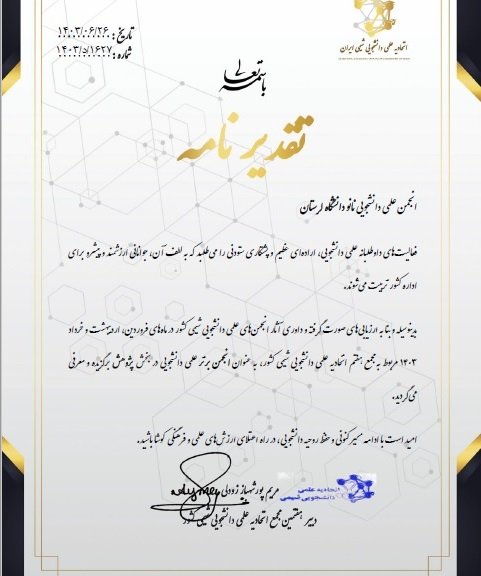 اتحادیه علمی دانشجویی شیمی ایران
تاریخ: ۱۴۰۳/۰۶/۲۶
شماره: ۱۴۰۳/د/۱۶۲۷
باسمه تعالی
تقدیرنامه
انجمن علمی دانشجویی نانو دانشگاه لرستان
فعالیت‌های داوطلبانه علمی دانشجویی، اراده‌ای عظیم و پشتکاری ستودنی را می‌طلبد که به لطف آن، جوانانی ارزشمند و پیشرو برای
اداره کشور تربیت می‌شوند.
بدینوسیله و بنا به ارزیابی‌های صورت گرفته و داوری آثار انجمن‌های علمی دانشجویی شیمی کشور در ماه‌های فروردین، اردیبهشت و خرداد
۱۴۰۳ مربوط به مجمع هفتم اتحادیه علمی دانشجویی شیمی کشور، به عنوان انجمن برتر علمی دانشجویی در بخش پژوهش برگزیده و معرفی
می‌گردید.
امید است با ادامه مسیر کنونی و حفظ روحیه دانشجویی، در راه اعتلای ارزش‌های علمی و فرهنگی کوشا باشید.
اتحادیه علمی
دانشجویی شیمی
مریم پورشهباز زودلی
دبیر هفتمین مجمع اتحادیه علمی دانشجویی شیمی کشور